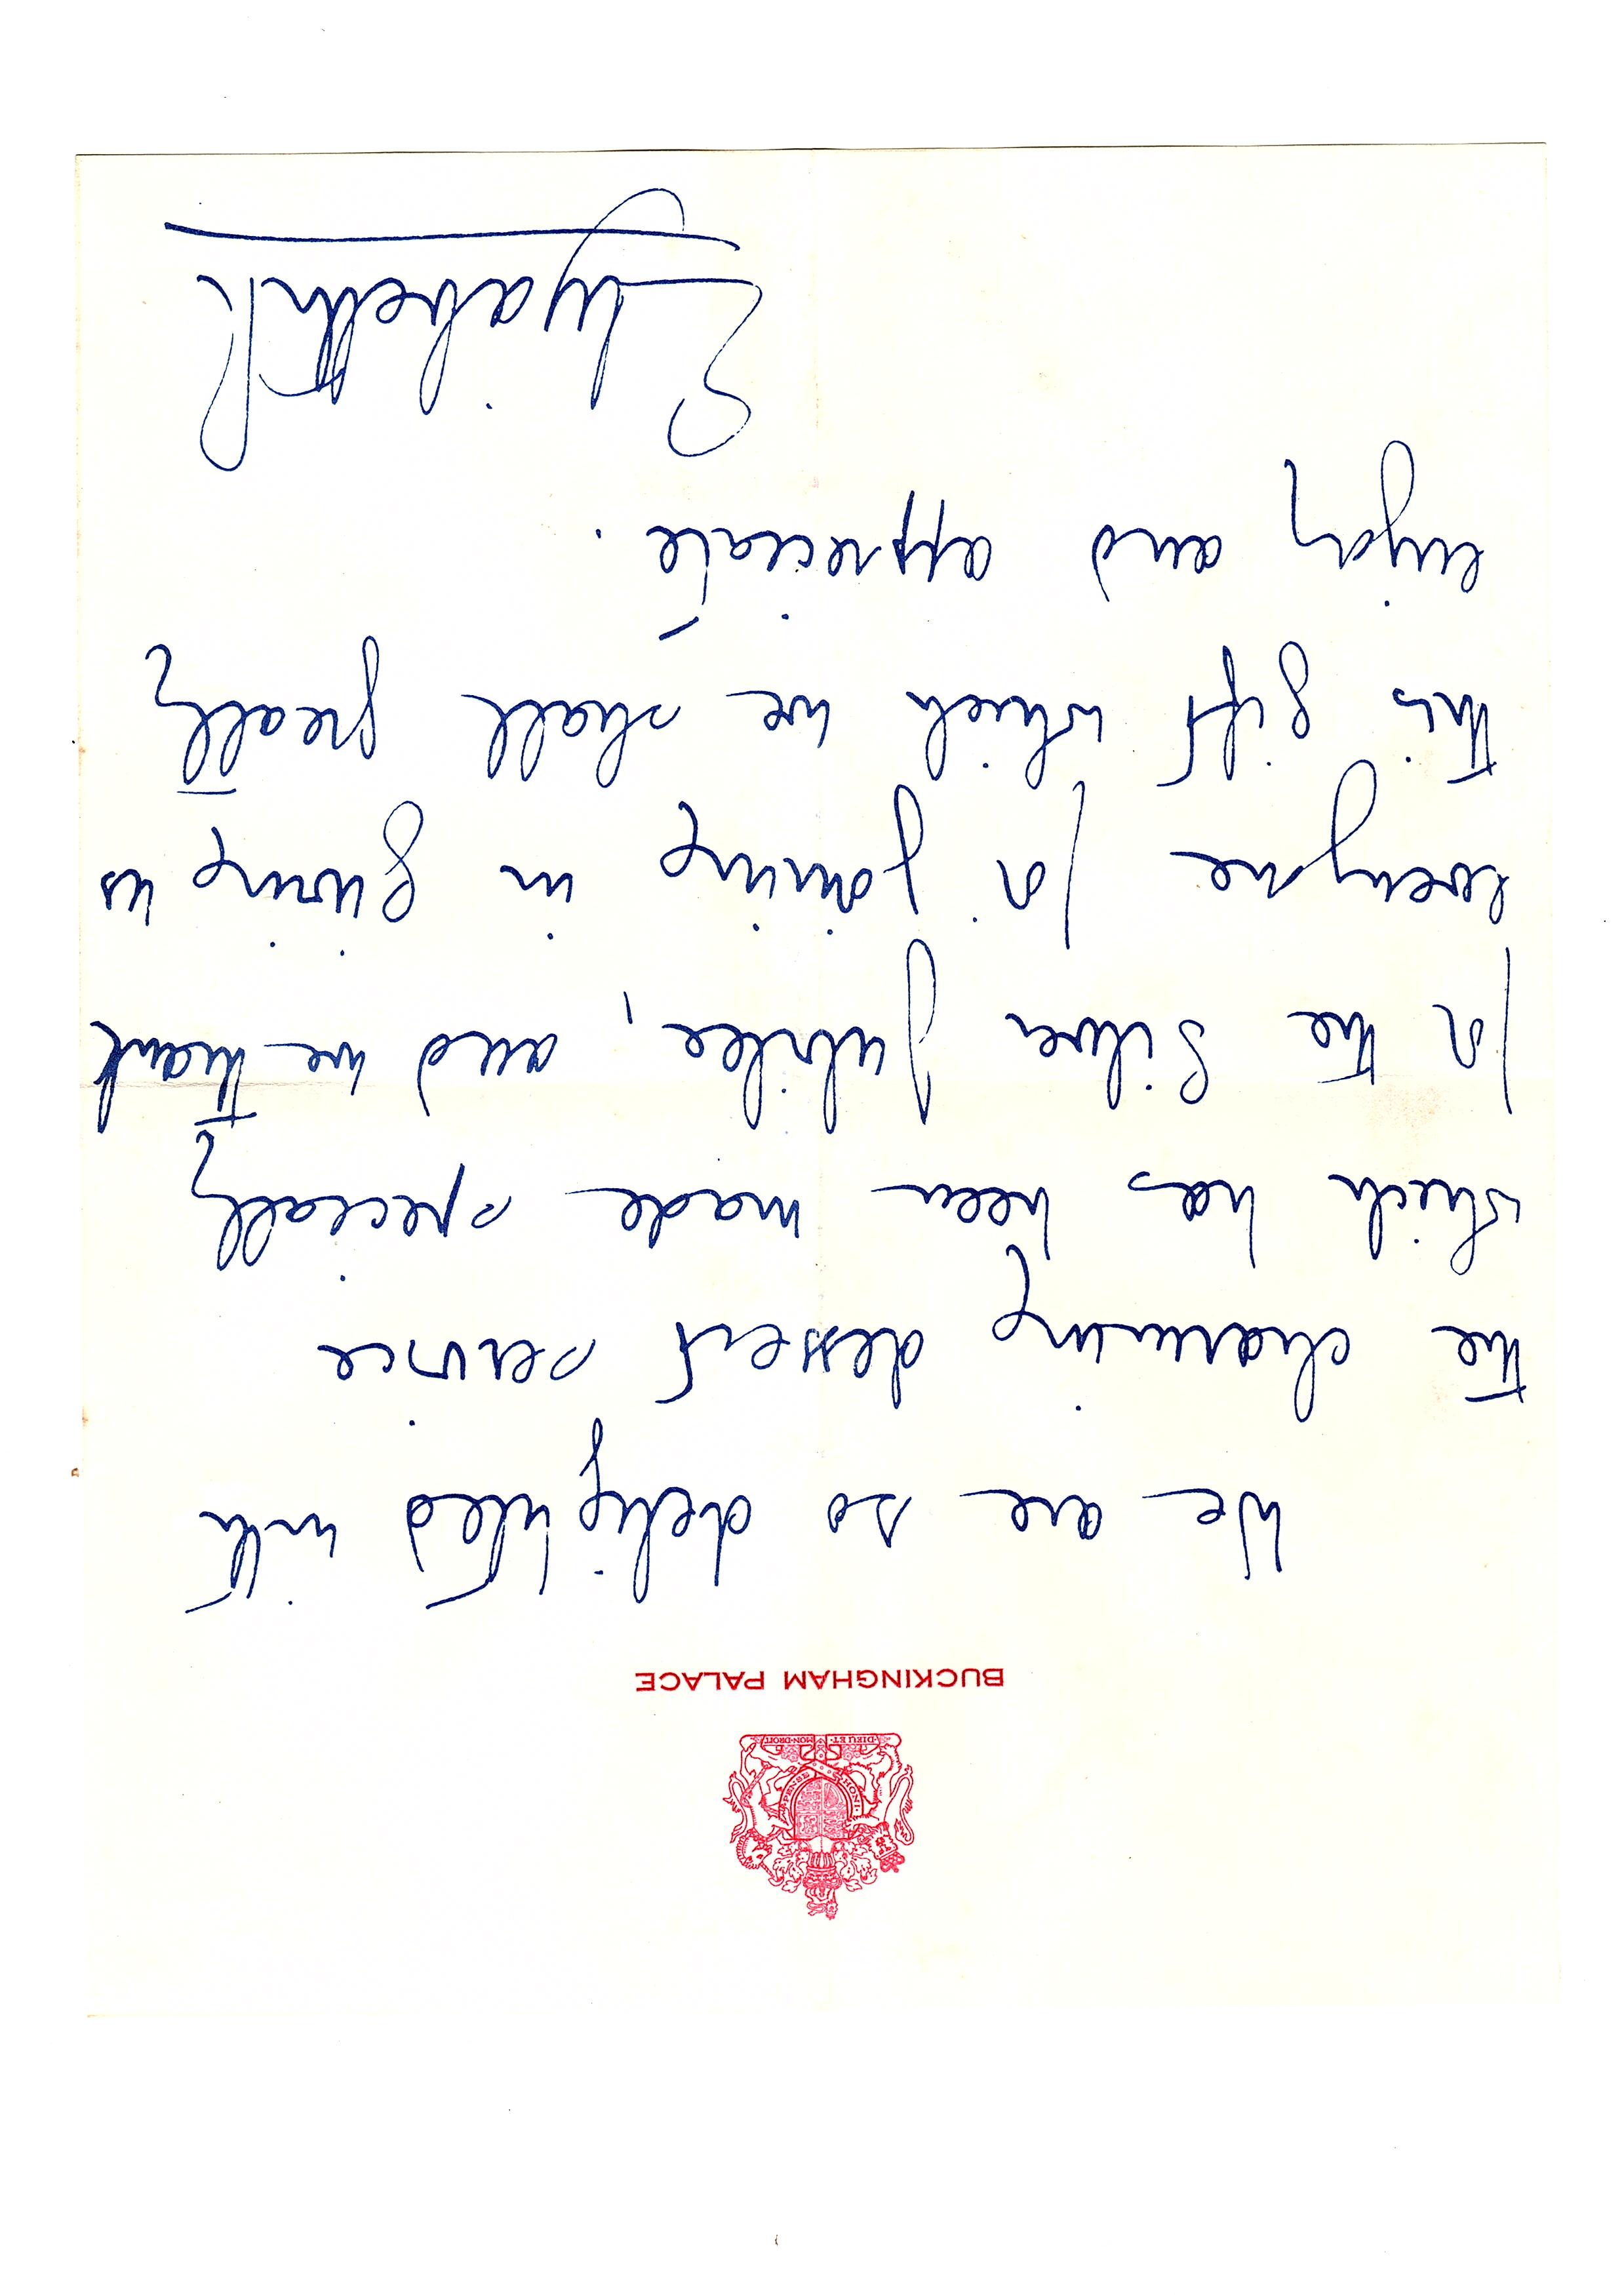 HONI
PENSE
DIEU ET
MON DROIT
BUCKINGHAM PALACE
We are so delighted with
the charming dessert service
which has been made specially
for the Silver Jubilee, and we thank
everyone for joining in giving us
this gift which we shall greatly
enjoy and appreciate.
Elizabeth R